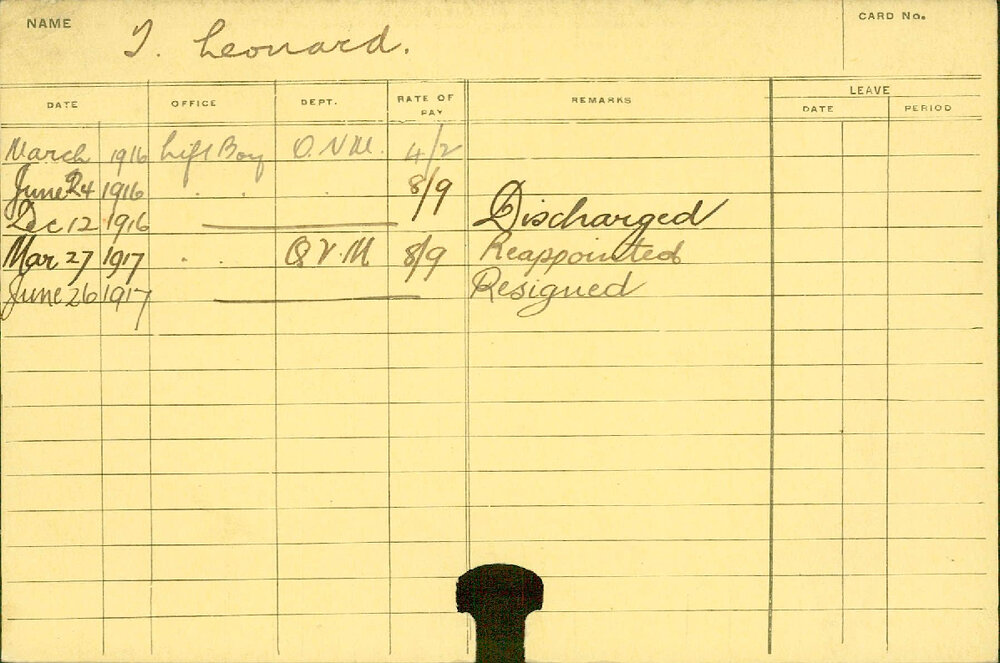 NAME T. Leonard.
CARD No.
DATE OFFICE DEPT. RATE OF PAY REMARKS LEAVE
DATE PERIOD
March 1916 Lift Boy Q.V.M. 4/2
June 24 1916 . . . 8/9
Dec 12 1916 Discharged
Mar 27 1917 . . Q V.M 8/9 Reappointed
June 26 1917 Resigned